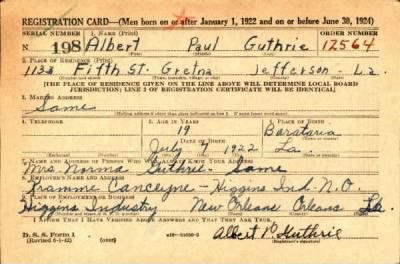 REGISTRATION CARD—(Men born on or after January 1, 1922 and on or before June 30, 1924)
SERIAL NUMBER 1. NAME (Print) ORDER NUMBER
N 198 Albert Paul Guthrie 12564
(First) (Middle) (Last)
2. PLACE OF RESIDENCE (Print)
1133 Fifth St. Gretna Jefferson - La.
(Number and street) (Town, township, village, or city) (County) (State)
[THE PLACE OF RESIDENCE GIVEN ON THE LINE ABOVE WILL DETERMINE LOCAL BOARD
JURISDICTION; LINE 2 OF REGISTRATION CERTIFICATE WILL BE IDENTICAL]
3. MAILING ADDRESS
Same
[Mailing address if other than place indicated on line 2. If same insert word same]
4. TELEPHONE 5. AGE IN YEARS 6. PLACE OF BIRTH
19 Barataria
DATE OF BIRTH
July 7 1922 La.
7. NAME AND ADDRESS OF PERSON WHO WILL ALWAYS KNOW YOUR ADDRESS
Mrs. Norma Guthrie - Same
8. EMPLOYER'S NAME AND ADDRESS
- Higgins Ind - N.O.
9. PLACE OF EMPLOYMENT OR BUSINESS
Higgins Industry New Orleans Orleans La.
I AFFIRM THAT I HAVE VERIFIED ABOVE ANSWERS AND THAT THEY ARE TRUE.
D. S. S. Form 1
(Revised 6-1-42) Albert P. Guthrie
(Registrant's signature)